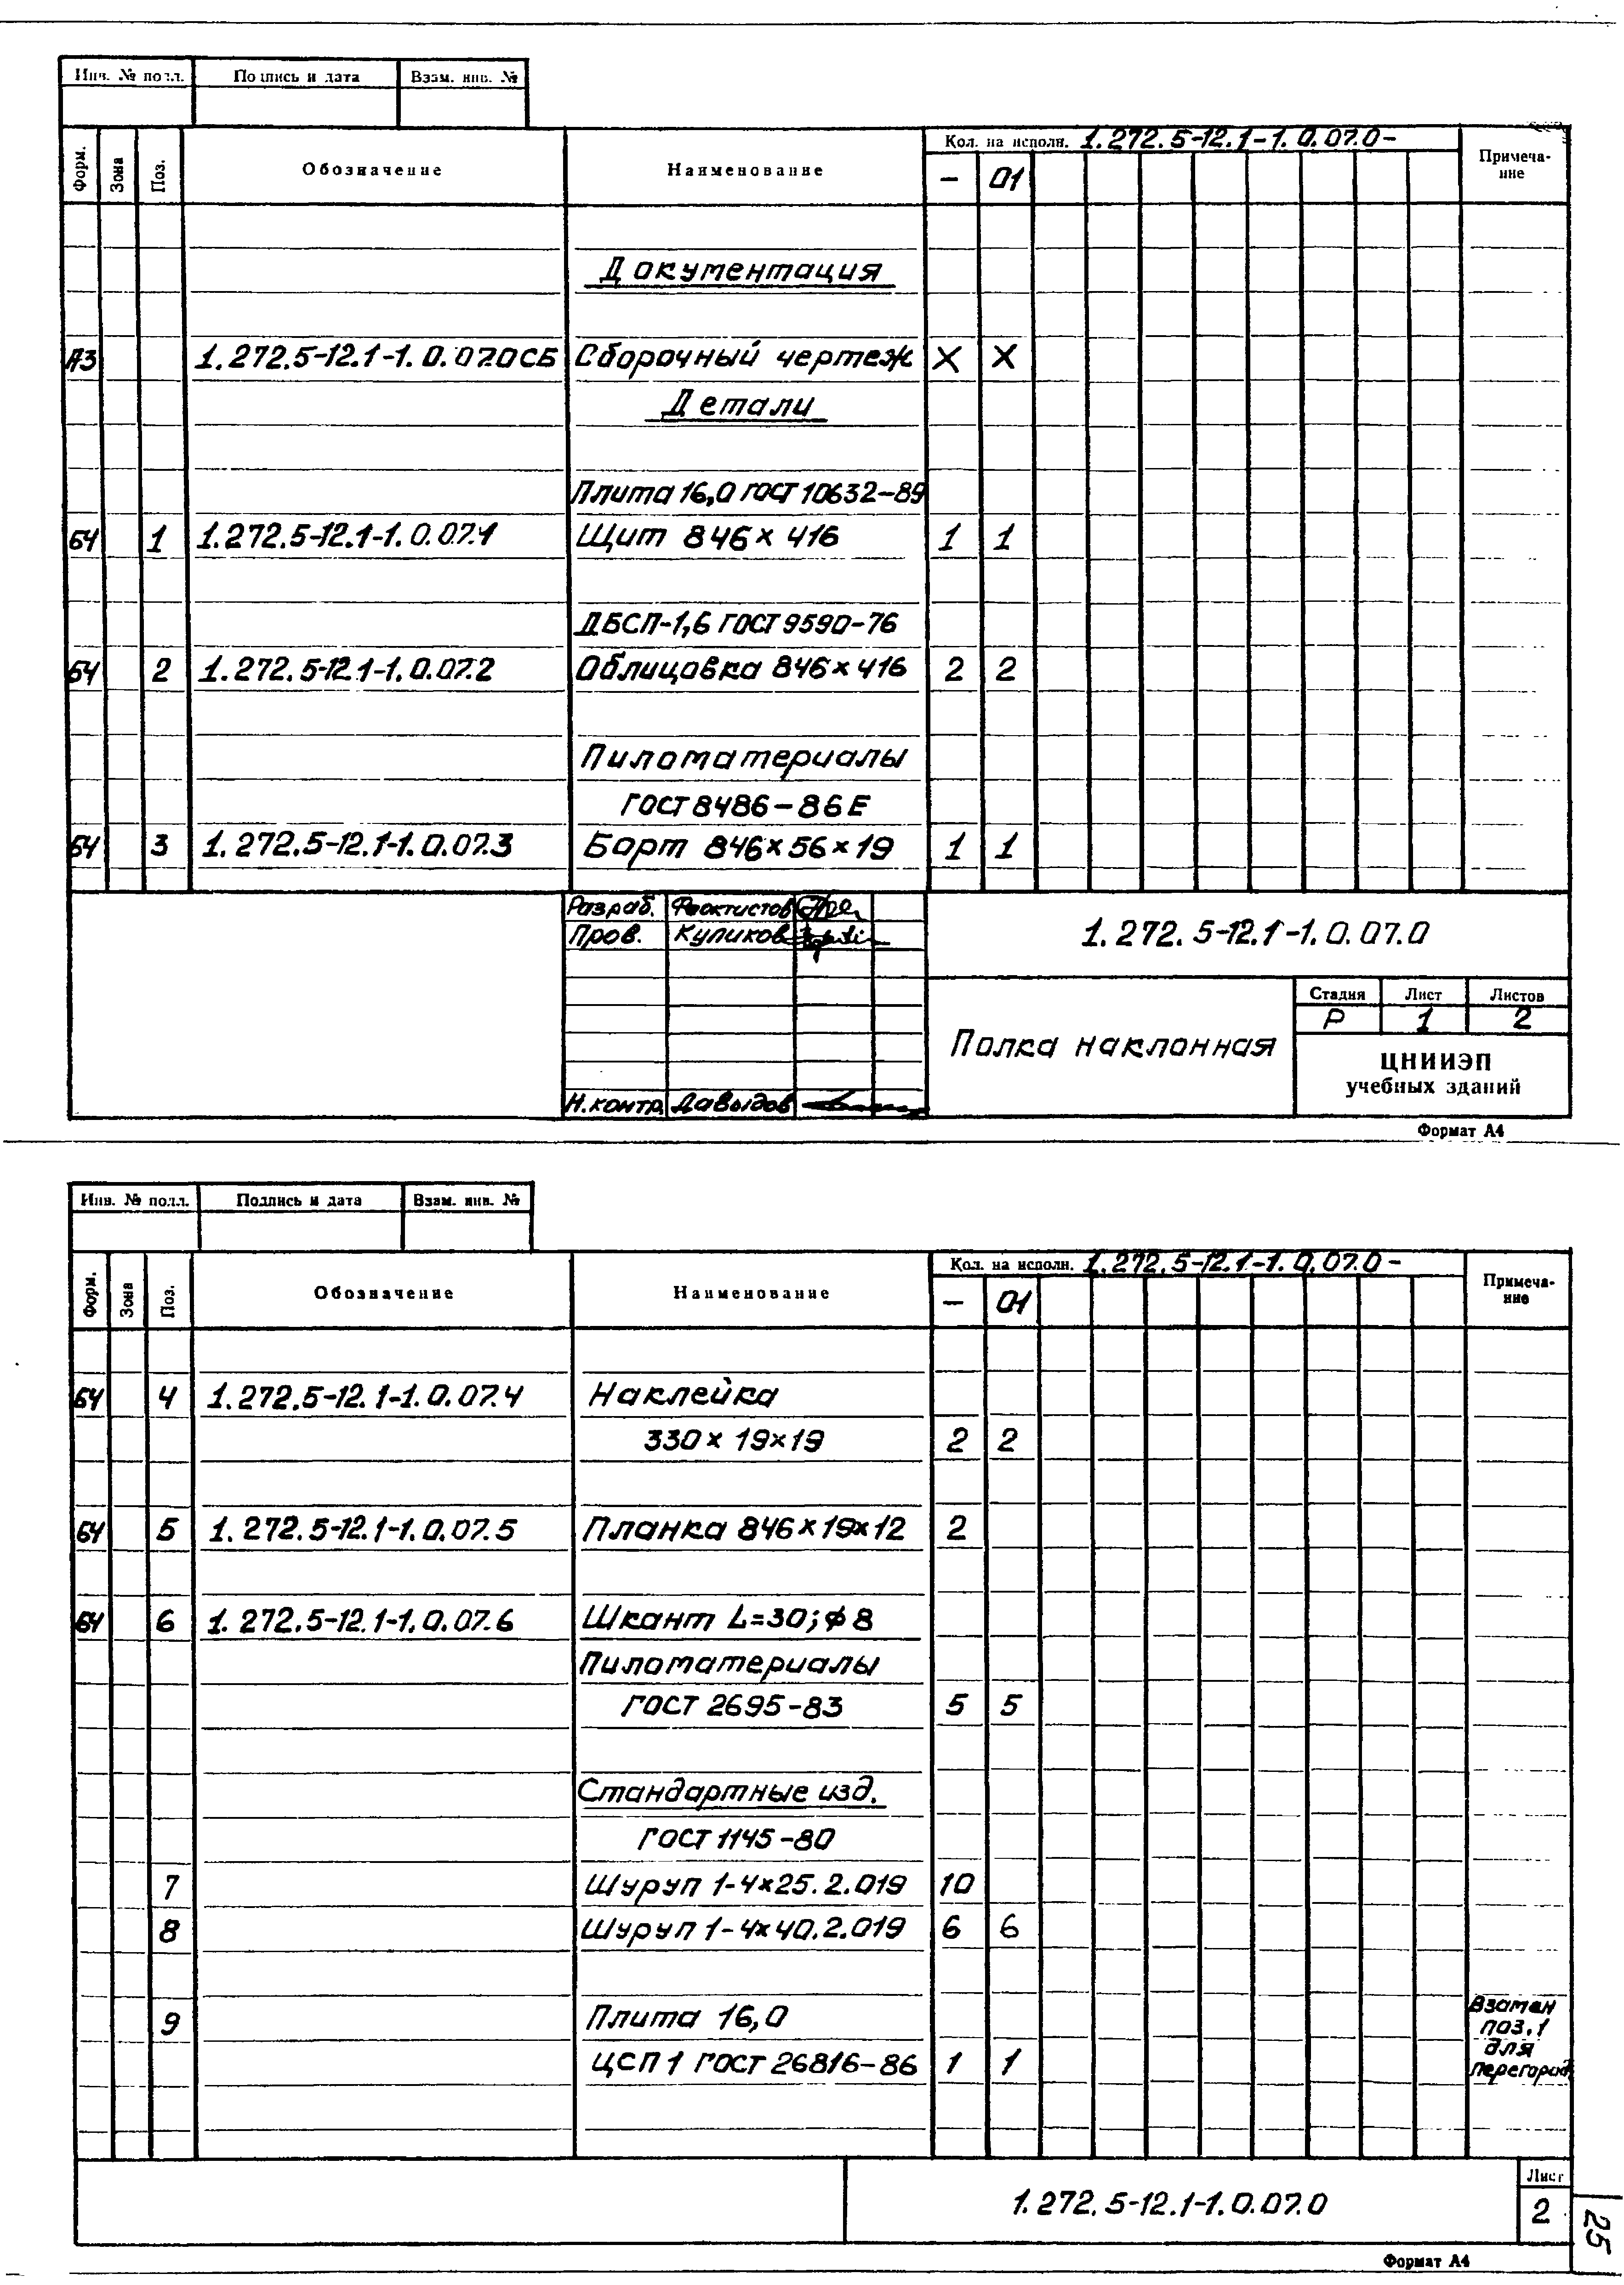 Инв. № подл. Подпись и дата Взам. инв. №
Форм. Зона Поз. Обозначение Наименование Кол. на исполн. 1.272.5-12.1-1.0.07.0- Примеча-
ние
— 01
Документация
А3 1.272.5-12.1-1.0.07.0СБ Сборочный чертеж X X
Детали
Плита 16,0 ГОСТ 10632-89
БЧ 1 1.272.5-12.1-1.0.07.1 Щит 846×416 1 1
ДБСП-1,6 ГОСТ 9590-76
БЧ 2 1.272.5-12.1-1.0.07.2 Облицовка 846×416 2 2
Пиломатериалы
ГОСТ 8486-86Е
БЧ 3 1.272.5-12.1-1.0.07.3 Борт 846×56×19 1 1
Разраб. Феоктистов
Пров. Куликов
Н.контр. Давыдов
1.272.5-12.1-1.0.07.0
Полка наклонная
Стадия Лист Листов
Р 1 2
ЦНИИЭП
учебных зданий
Формат А4
Инв. № подл. Подпись и дата Взам. инв. №
Форм. Зона Поз. Обозначение Наименование Кол. на исполн. 1.272.5-12.1-1.0.07.0- Примеча-
ние
— 01
БЧ 4 1.272.5-12.1-1.0.07.4 Наклейка
330×19×19 2 2
БЧ 5 1.272.5-12.1-1.0.07.5 Планка 846×19×12 2
БЧ 6 1.272.5-12.1-1.0.07.6 Шкант L=30; ф 8
Пиломатериалы
ГОСТ 2695-83 5 5
Стандартные изд.
ГОСТ 1145-80
7 Шуруп 1-4×25.2.019 10
8 Шуруп 1-4×40.2.019 6 6
9 Плита 16,0
ЦСП 1 ГОСТ 26816-86 1 1
Взамен
поз.1
для
перегород.
1.272.5-12.1-1.0.07.0
Лист
2
25
Формат А4